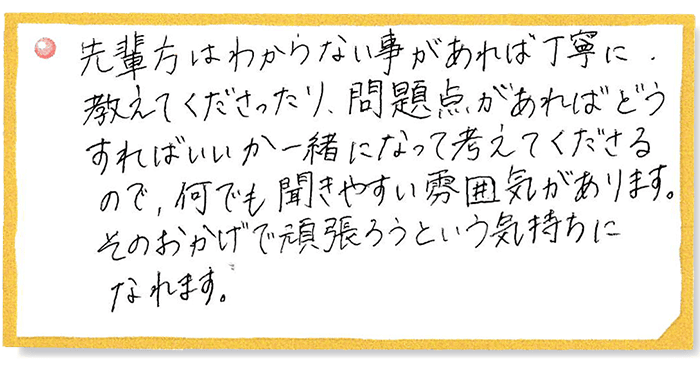 先輩方はわからない事があれば丁寧に
教えてくださったり、問題点があればどう
すればいいか一緒になって考えてくださる
ので、何でも聞きやすい雰囲気があります。
そのおかげで頑張ろうという気持ちに
なれます。